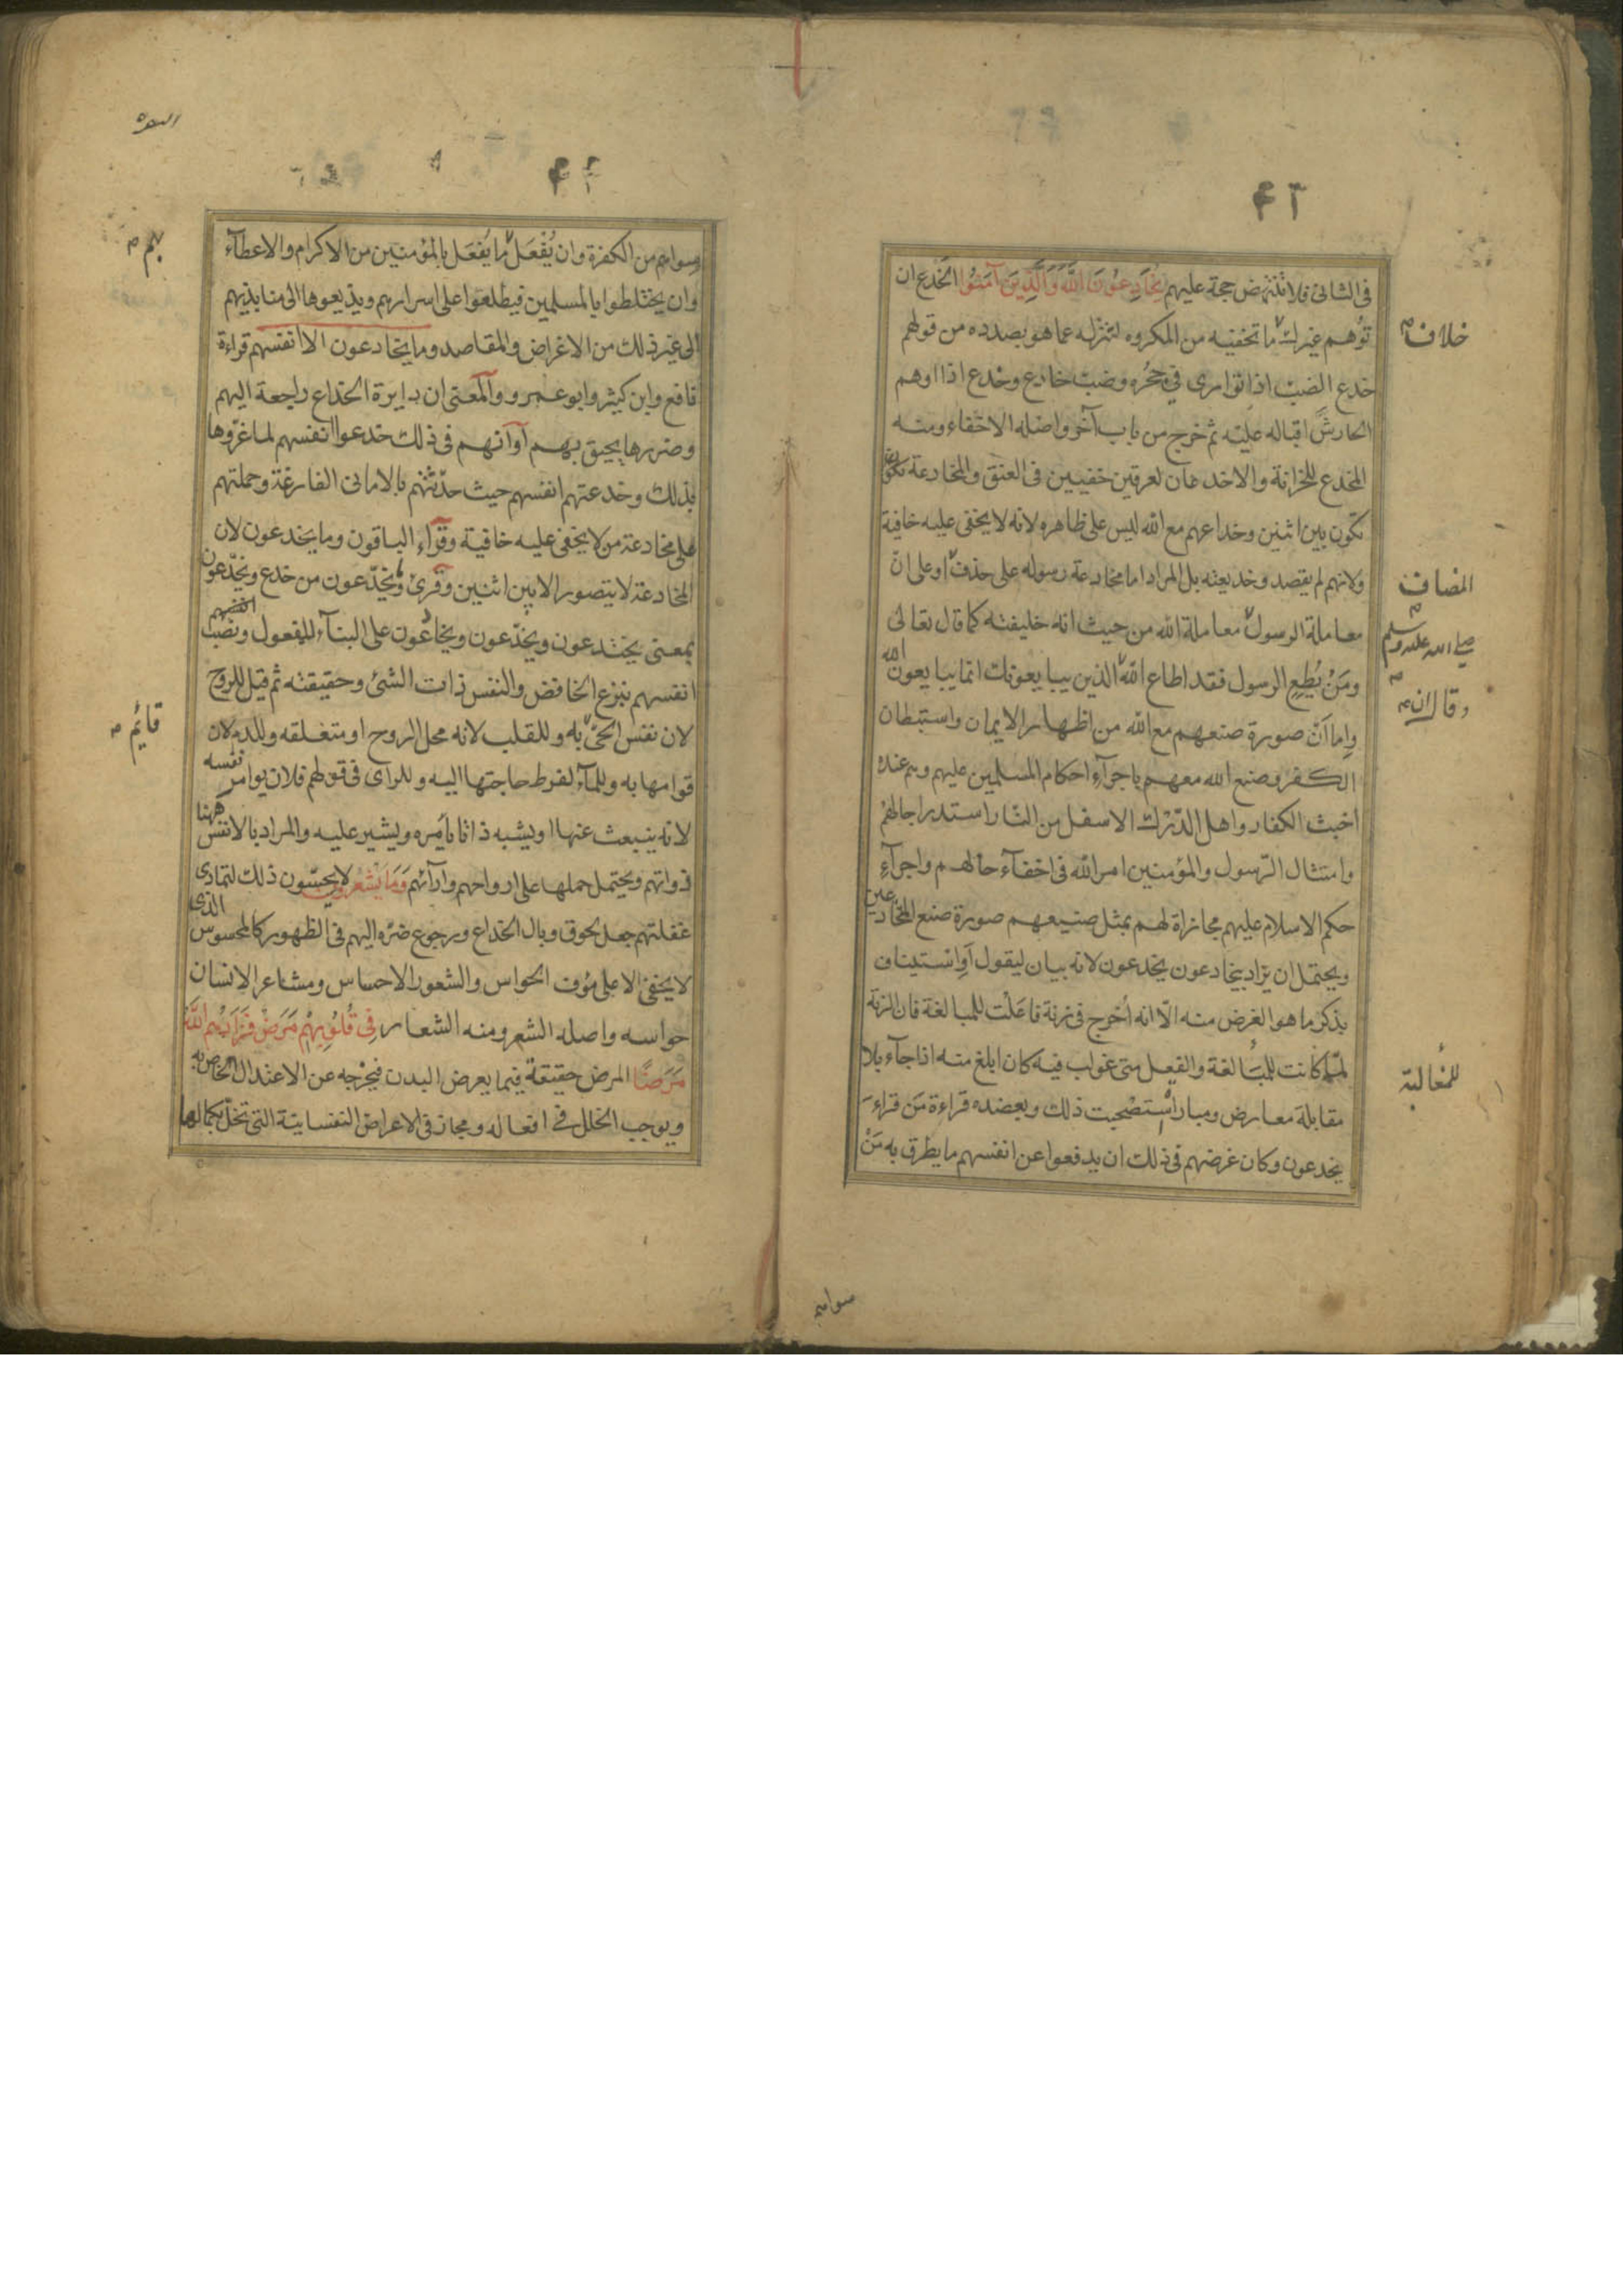 ٤٣
في الثاني فلا تنتهض حجة عليهم يُخَادِعُونَ اللَّهَ وَالَّذِينَ آمَنُوا الخدع ان
توهم غيرك ما تخفيه من المكروه لتنزله عما هو بصدده من قولهم
خلاف
خدع الضب اذا توارى في جحره وضب خادع وخدع اذا اوهم
الحارش اقباله عليه ثم خرج من باب آخر واصله الاخفاء ومنه
المخدع للخزانة والاخدعان لعرقين خفيين في العنق والمخادعة تكون
تكون بين اثنين وخداعهم مع الله ليس على ظاهره لانه لا يخفى عليه خافية
ولانهم لم يقصدوا خديعته بل المراد اما مخادعة رسوله على حذف او على ان
المضاف
معاملة الرسول معاملة الله من حيث انه خليفته كما قال تعالى
صلى الله عليه وسلم
ومَنْ يُطِعِ الرسول فقد اطاع الله الذين يبايعونك انما يبايعون الله
وقال ان
واما أنّ صورة صنعهم مع الله من اظهار الايمان واستبطان
الكفر وصنع الله معهم باجرآء احكام المسلمين عليهم وهم عنده
اخبث الكفار واهل الدّرْك الاسفل من النّار استدراجا لهم
وامتثال الرّسول والمؤمنين امر الله في اخفآء حالهم واجرآء
حكم الاسلام عليهم مجازاة لهم بمثل صنيعهم صورة صنع المخادعين
ويحتمل ان يراد بيخادعون يخدعون لانه بيان ليقول أو استيناف
بذكر ما هو الغرض منه الّا انه أخرج في زنة فاعلت للمبالغة فان الزنة
لمّا كانت للمبالغة والفعل متى غولب فيه كان ابلغ منه اذا جآء بلا
للمغالبة
مقابلة معارض ومبار استصحبت ذلك ويعضده قراءة مَن قراء
يخدعون وكان غرضهم في ذلك ان يدفعوا عن انفسهم ما يطرق به مَنْ
سواهم
البقرة
٤٤
سواهم من الكفرة وان يُفْعَل ما يُفعَل بالمؤمنين من الاكرام والاعطآء
بهم
وان يختلطوا بالمسلمين فيطلعوا على اسرارهم ويذيعوها الى منابذيهم
الى غير ذلك من الاغراض والمقاصد وما يخادعون الا انفسهم قراءة
نافع وابن كثير وابو عمرو والمعنى ان دايرة الخداع راجعة اليهم
وضررها يحيق بهم أو أنهم في ذلك خدعوا انفسهم لما غرّوها
بذلك وخدعتهم انفسهم حيث حدّثتهم بالاماني الفارغة وحملتهم
على مخادعة من لا يخفى عليه خافية وقرآء الباقون وما يخدعون لان
المخادعة لا يتصور الا بين اثنين وقرئ ويُخدّعون من خدع ويخدّعون
بمعنى يختدعون ويخدّعون ويخادعون على البنآء للمفعول ونصْب انفسهم
انفسهم بنزع الخافض والنفس ذات الشئ وحقيقته ثم قيل للروح
لان نفس الحيّ به وللقلب لانه محل الروح او متعلقه وللدم لان
قائم
قوامها به وللمآء لفرط حاجتها اليه وللرأى في قولهم فلان يوامر نفسه
لانه ينبعث عنها او يشبه ذاتا يأمره ويشير عليه والمراد بالانفس ههنا
ذواتهم ويحتمل حملها على ارواحهم وآرآئهم وَمَا يَشْعُرُونَ لا يحسّون ذلك لتمادى
غفلتهم جعل لحوق وبال الخداع ورجوع ضرّه اليهم في الظهور كالمحسوس الذى
لا يخفى الا على مؤف الحواس والشعور الاحساس ومشاعر الانسان
حواسه واصله الشعر ومنه الشعار فِي قُلُوبِهِمْ مَرَضٌ فَزَادَهُمُ اللَّهُ
مَرَضًا المرض حقيقة فيما يعرض البدن فيخرجه عن الاعتدال الخاص به
ويوجب الخلل في افعاله ومجاز في الاعراض النفسانية التي تخلّ بكمالها